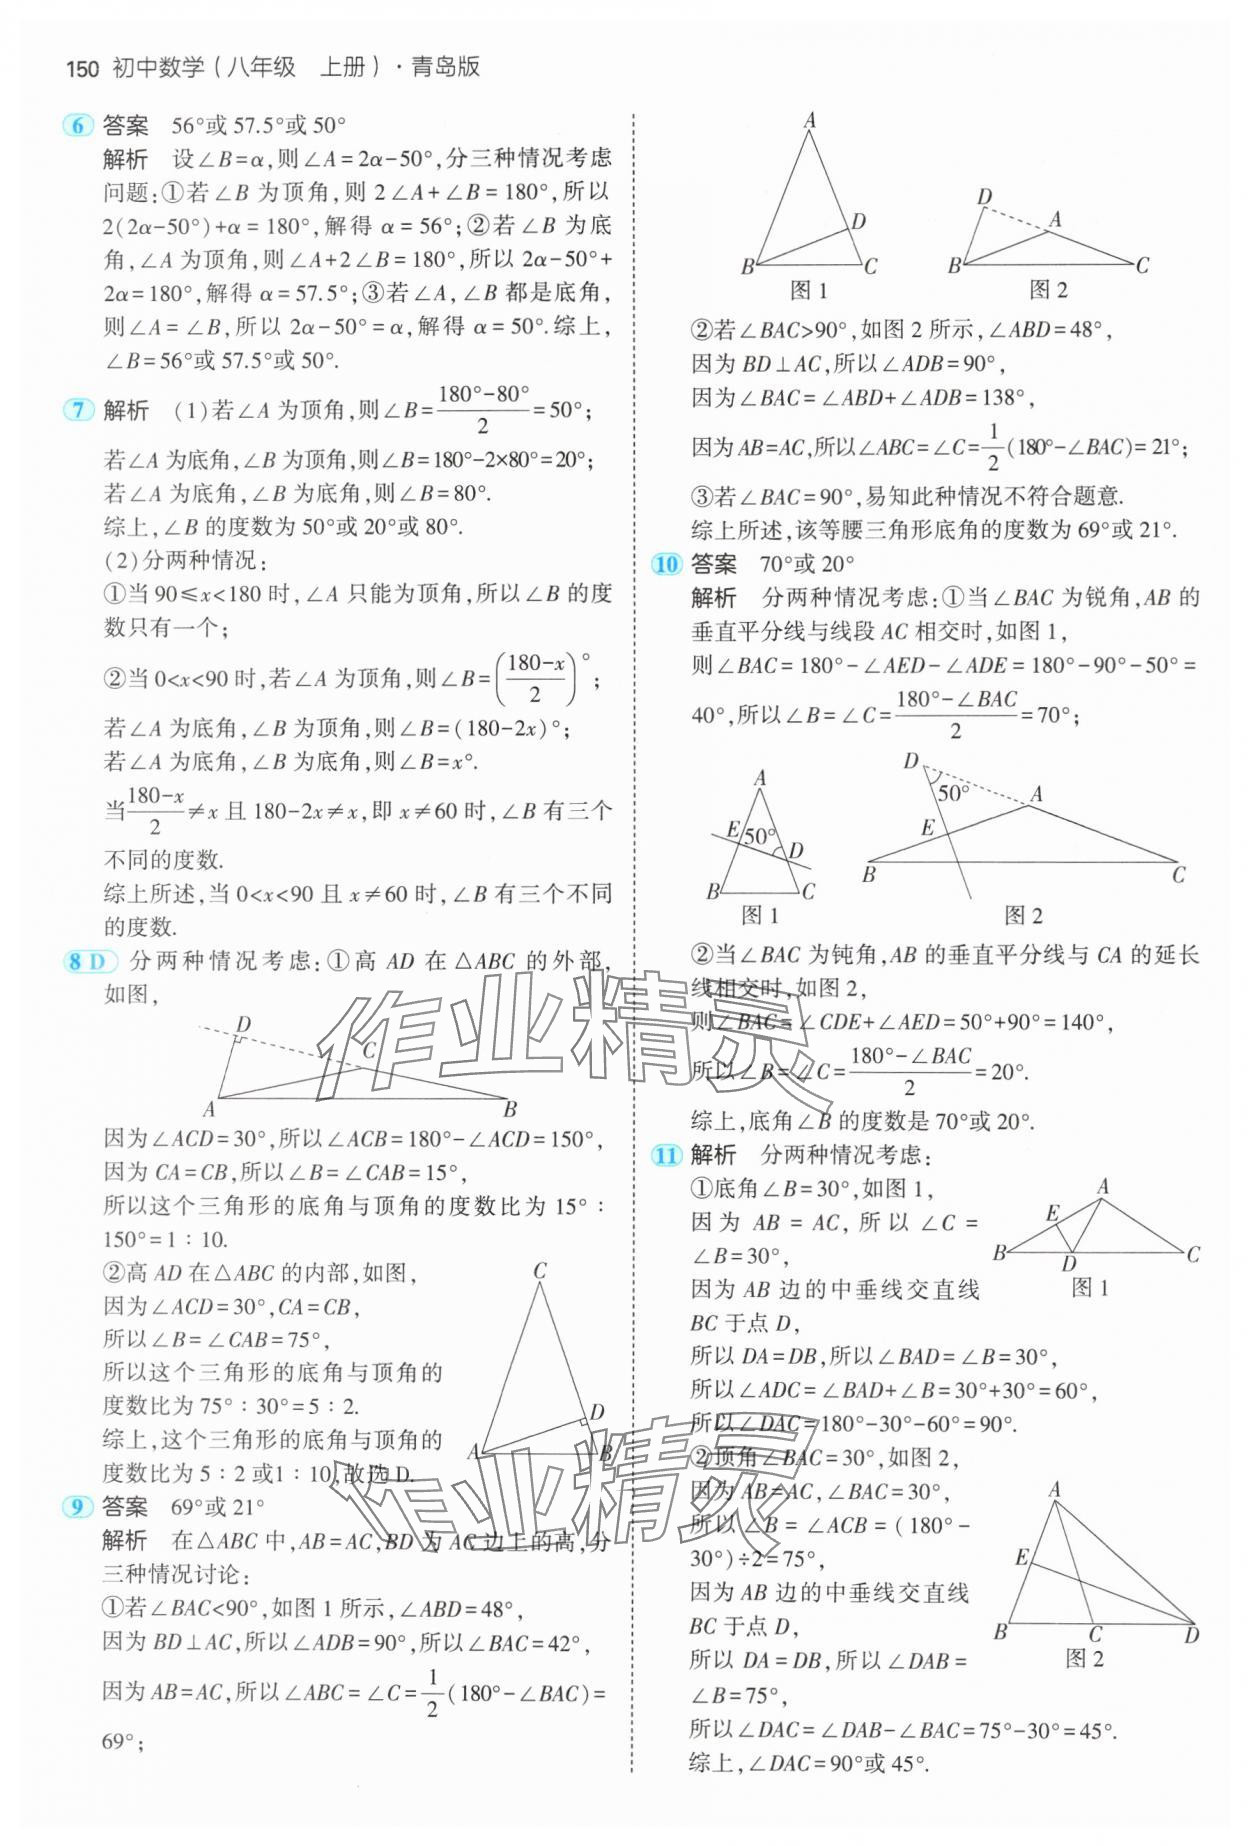 150 初中数学(八年级 上册)·青岛版
6 答案 56°或 57.5°或 50°
解析 设∠B=α,则∠A=2α-50°,分三种情况考虑
问题:①若∠B 为顶角,则 2∠A+∠B=180°,所以
2(2α-50°)+α=180°,解得 α=56°;②若∠B 为底
角,∠A 为顶角,则∠A+2∠B=180°,所以 2α-50°+
2α=180°,解得 α=57.5°;③若∠A,∠B 都是底角,
则∠A=∠B,所以 2α-50°=α,解得 α=50°.综上,
∠B=56°或 57.5°或 50°.
7 解析 (1)若∠A 为顶角,则∠B=(180°-80°)/2=50°;
若∠A 为底角,∠B 为顶角,则∠B=180°-2×80°=20°;
若∠A 为底角,∠B 为底角,则∠B=80°.
综上,∠B 的度数为 50°或 20°或 80°.
(2)分两种情况:
①当 90≤x<180 时,∠A 只能为顶角,所以∠B 的度
数只有一个;
②当 0<x<90 时,若∠A 为顶角,则∠B=((180-x)/2)°;
若∠A 为底角,∠B 为顶角,则∠B=(180-2x)°;
若∠A 为底角,∠B 为底角,则∠B=x°.
当(180-x)/2≠x 且 180-2x≠x,即 x≠60 时,∠B 有三个
不同的度数.
综上所述,当 0<x<90 且 x≠60 时,∠B 有三个不同
的度数.
8 D 分两种情况考虑:①高 AD 在△ABC 的外部,
如图,
D
C
A
B
因为∠ACD=30°,所以∠ACB=180°-∠ACD=150°,
因为 CA=CB,所以∠B=∠CAB=15°,
所以这个三角形的底角与顶角的度数比为 15°:
150°=1:10.
②高 AD 在△ABC 的内部,如图,
因为∠ACD=30°,CA=CB,
所以∠B=∠CAB=75°,
所以这个三角形的底角与顶角的
度数比为 75°:30°=5:2.
综上,这个三角形的底角与顶角的
度数比为 5:2 或1:10,故选 D.
C
D
A
B
9 答案 69°或 21°
解析 在△ABC 中,AB=AC,BD 为 AC 边上的高,分
三种情况讨论:
①若∠BAC<90°,如图 1 所示,∠ABD=48°,
因为 BD⊥AC,所以∠ADB=90°,所以∠BAC=42°,
因为 AB=AC,所以∠ABC=∠C=1/2(180°-∠BAC)=
69°;
A
D
B
C
图 1
D
A
B
C
图 2
②若∠BAC>90°,如图 2 所示,∠ABD=48°,
因为 BD⊥AC,所以∠ADB=90°,
因为∠BAC=∠ABD+∠ADB=138°,
因为AB=AC,所以∠ABC=∠C=1/2(180°-∠BAC)=21°;
③若∠BAC=90°,易知此种情况不符合题意.
综上所述,该等腰三角形底角的度数为 69°或 21°.
10 答案 70°或 20°
解析 分两种情况考虑:①当∠BAC 为锐角,AB 的
垂直平分线与线段 AC 相交时,如图 1,
则∠BAC=180°-∠AED-∠ADE=180°-90°-50°=
40°,所以∠B=∠C=(180°-∠BAC)/2=70°;
A
E
50°
D
B
C
图 1
D
50°
A
E
B
C
图 2
②当∠BAC 为钝角,AB 的垂直平分线与 CA 的延长
线相交时,如图 2,
则∠BAC=∠CDE+∠AED=50°+90°=140°,
所以∠B=∠C=(180°-∠BAC)/2=20°.
综上,底角∠B 的度数是 70°或 20°.
11 解析 分两种情况考虑:
①底角∠B=30°,如图 1,
因为 AB=AC,所以∠C=
∠B=30°,
因为 AB 边的中垂线交直线
BC 于点 D,
A
E
B
D
C
图 1
所以 DA=DB,所以∠BAD=∠B=30°,
所以∠ADC=∠BAD+∠B=30°+30°=60°,
所以∠DAC=180°-30°-60°=90°.
②顶角∠BAC=30°,如图 2,
因为 AB=AC,∠BAC=30°,
所以∠B=∠ACB=(180°-
30°)÷2=75°,
因为 AB 边的中垂线交直线
BC 于点 D,
所以 DA=DB,所以∠DAB=
∠B=75°,
A
E
B
C
D
图 2
所以∠DAC=∠DAB-∠BAC=75°-30°=45°.
综上,∠DAC=90°或 45°.
作业精灵
作业精灵